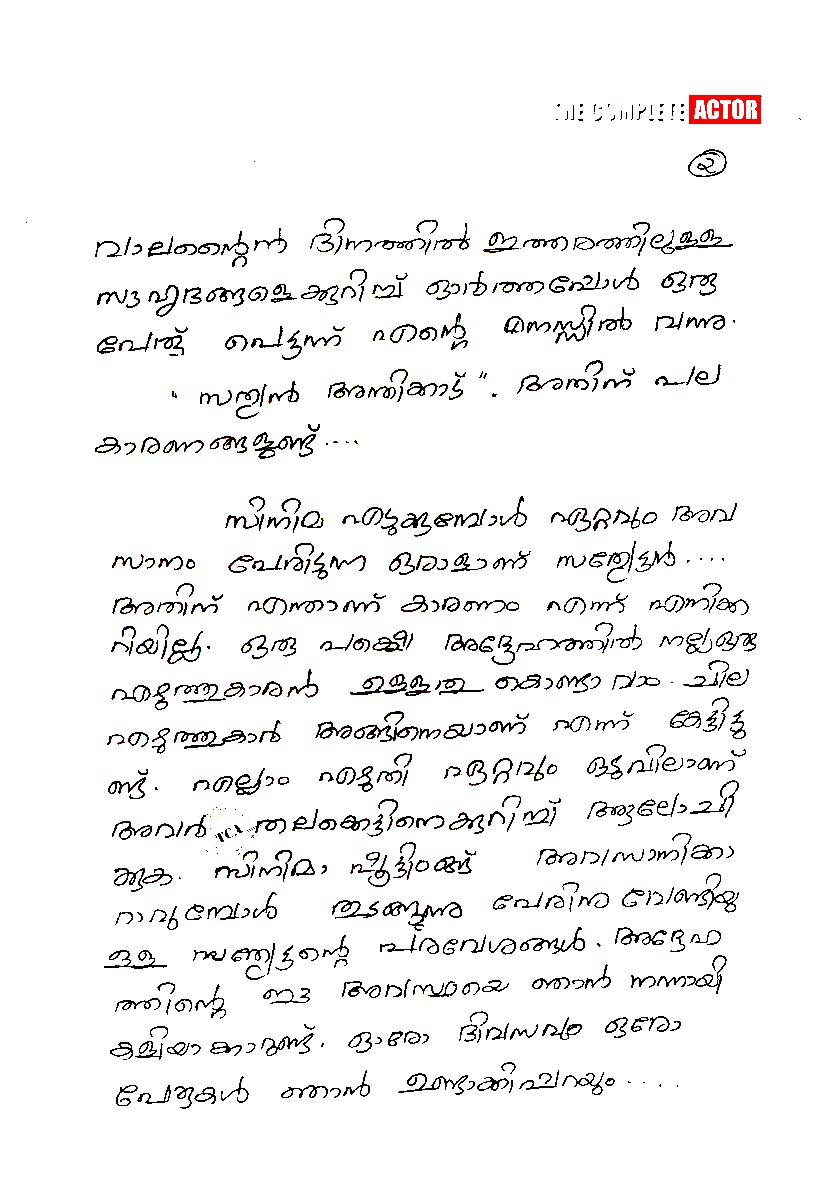 THE COMPLETE ACTOR
൨
വാലന്റൈൻ ദിനത്തിൽ ഇത്തരത്തിലുള്ള
സൗഹൃദങ്ങളെക്കുറിച്ച് ഓർത്തപ്പോൾ ഒരു
പേര് പെട്ടന്ന് എന്റെ മനസ്സിൽ വന്നു.
" സത്യൻ അന്തിക്കാട് ". അതിന് പല
കാരണങ്ങളുണ്ട് ....
സിനിമ എടുക്കുമ്പോൾ ഏറ്റവും അവ
സാനം പേരിടുന്ന ഒരാളാണ് സത്യേട്ടൻ ....
അതിന് എന്താണ് കാരണം എന്ന് എനിക്ക
റിയില്ല. ഒരു പക്ഷെ അദ്ദേഹത്തിൽ നല്ല ഒരു
എഴുത്തുകാരൻ ഉള്ളതു കൊണ്ടാവാം. ചില
എഴുത്തുകാർ അങ്ങിനെയാണ് എന്ന് കേട്ടിട്ടു
ണ്ട്. എല്ലാം എഴുതി ഏറ്റവും ഒടുവിലാണ്
അവർ തലക്കെട്ടിനെക്കുറിച്ച് ആലോചി
ക്കുക. സിനിമാ ഷൂട്ടിംങ്ങ് അവസാനിക്കാ
റാവുമ്പോൾ തുടങ്ങുന്നു പേരിനു വേണ്ടിയു
ള്ള സത്യേട്ടന്റെ പരവേശങ്ങൾ. അദ്ദേഹ
ത്തിന്റെ ഈ അവസ്ഥയെ ഞാൻ നന്നായി
കളിയാക്കാറുണ്ട്. ഓരോ ദിവസവും ഒരോ
പേരുകൾ ഞാൻ ഉണ്ടാക്കിപ്പറയും ....